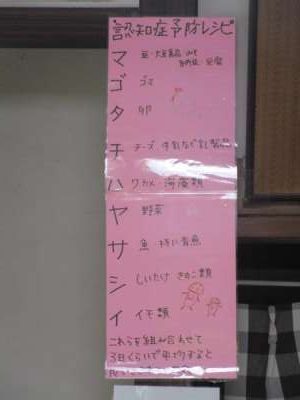 認知症予防レシピ
マ 豆・大豆製品
ゴ ゴマ
タ 卵
チ チーズ 牛乳など乳製品
ハ ワカメ 海藻類
ヤ 野菜
サ 魚 特に青魚
シ しいたけ きのこ類
イ イモ類
これらを組み合わせて
3日くらいで